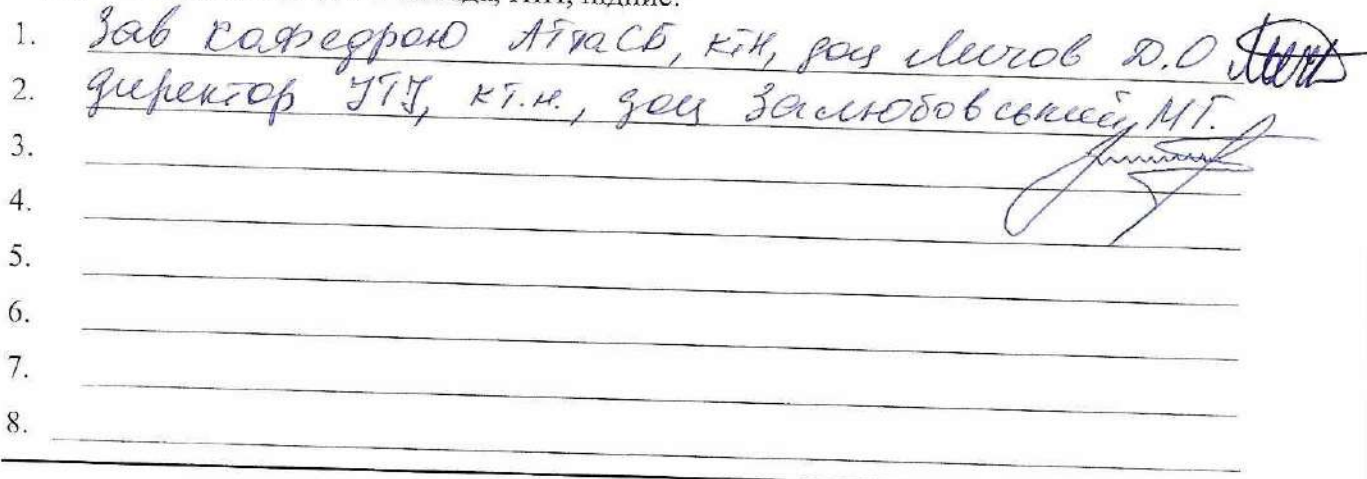 підпис.
1. Зав кафедрою АТтаСБ, ктн, доц Личов Д.О
2. директор УТУ, кт.н., доц Залюбовський МГ.
3.
4.
5.
6.
7.
8.